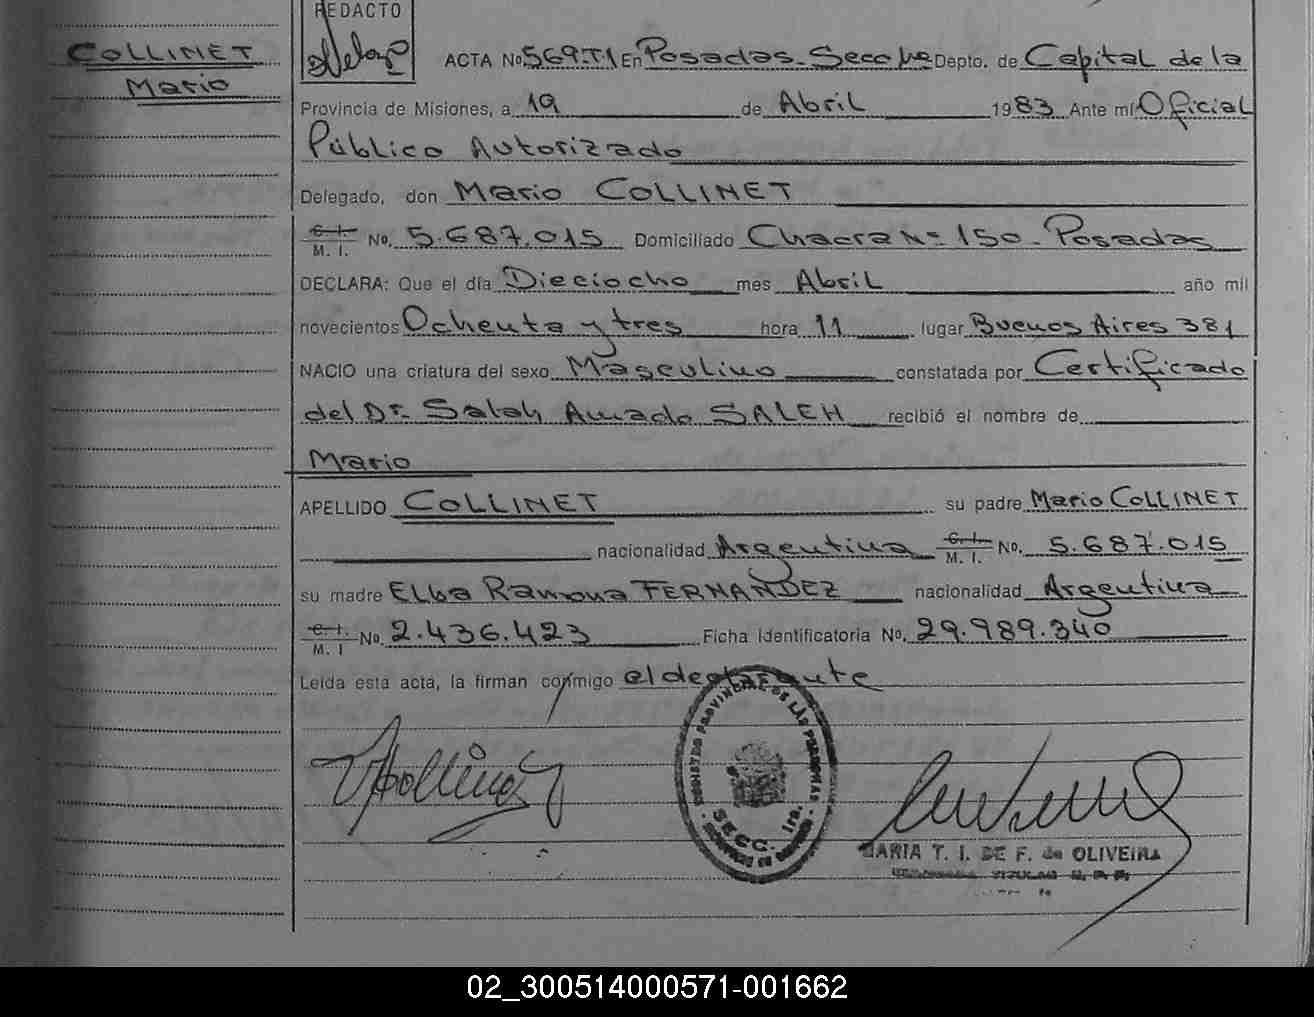 COLLINET
Mario
REDACTO
ACTA No. 569-T1 En Posadas - Secc 1ra Depto. de Capital de la
Provincia de Misiones, a 19 de Abril 1983 Ante mí Oficial
Público Autorizado
Delegado, don Mario COLLINET
C. I.
M. I. No. 5.687.015 Domiciliado Chacra Nº 150 - Posadas
DECLARA: Que el día Dieciocho mes Abril año mil
novecientos Ochenta y tres hora 11 lugar Buenos Aires 381
NACIO una criatura del sexo Masculino constatada por Certificado
del Dr. Salah Amado SALEH recibió el nombre de
Mario
APELLIDO COLLINET su padre Mario COLLINET
nacionalidad Argentina C. I. M. I. No. 5.687.015
su madre Elba Ramona FERNANDEZ nacionalidad Argentina
C. I.
M. I No. 2.436.423 Ficha Identificatoria No. 29.989.340
Leída esta acta, la firman conmigo el declarante
REGISTRO PROVINCIAL DE LAS PERSONAS
SECC. 1ra.
MARIA T. I. DE F. de OLIVEIRA
TITULAR R. P. P.
02_300514000571-001662